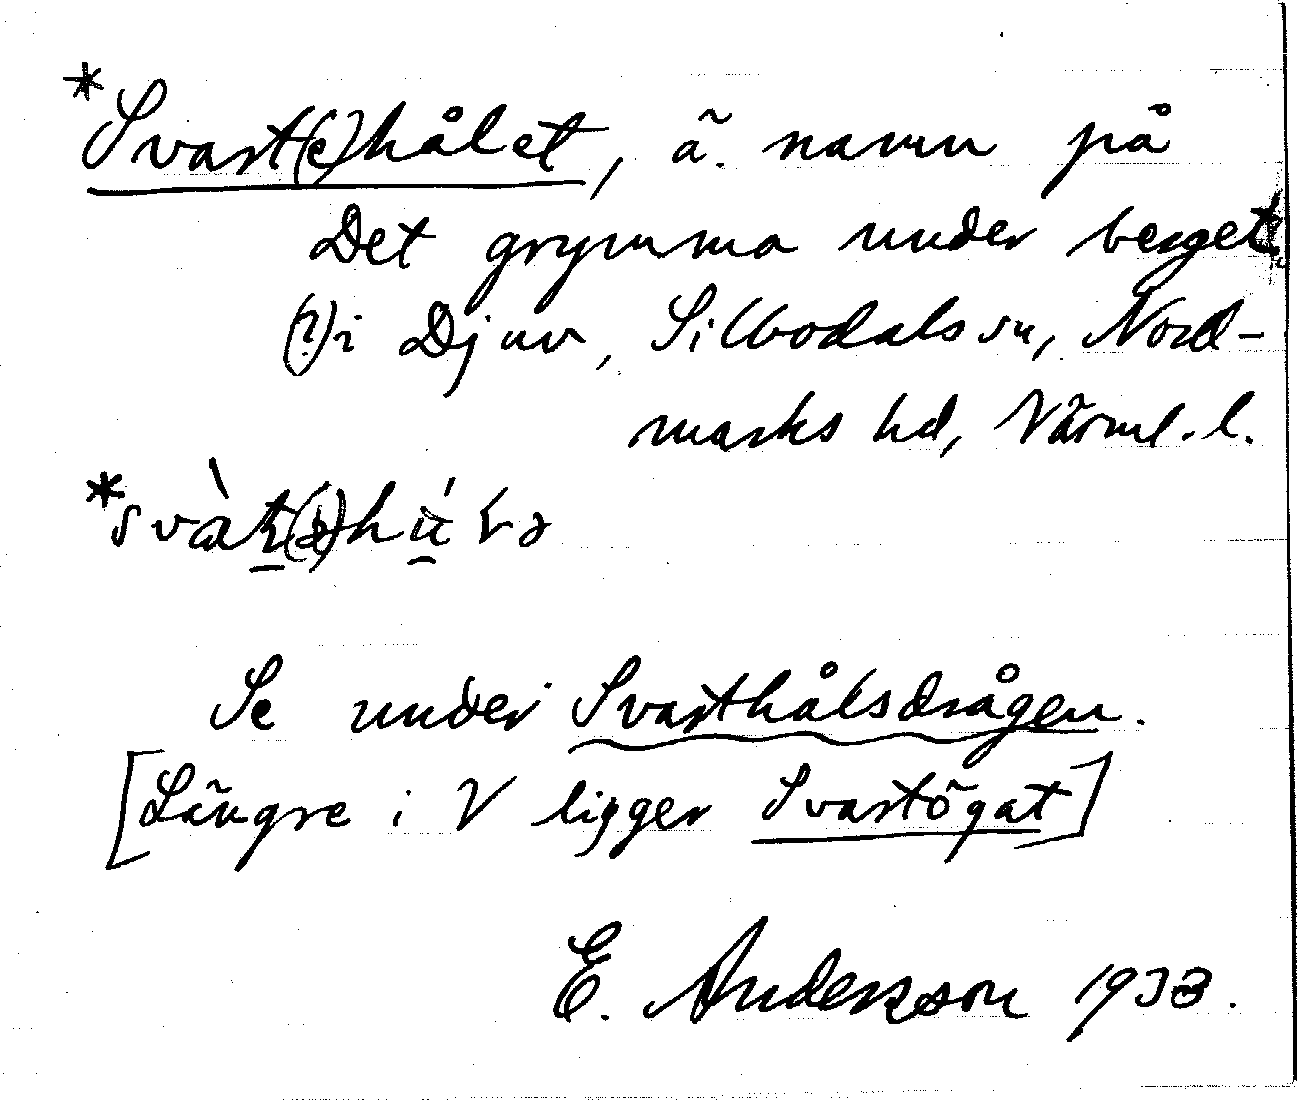 *Svart(e)hålet, ä. namn på
Det grymma under berget
(?) i Djuv, Silbodals sn, Nord-
marks hd, Värml. l.
Se under Svarthålsdrågen.
[Längre i V ligger Svartögat]
E. Andersson 1933.